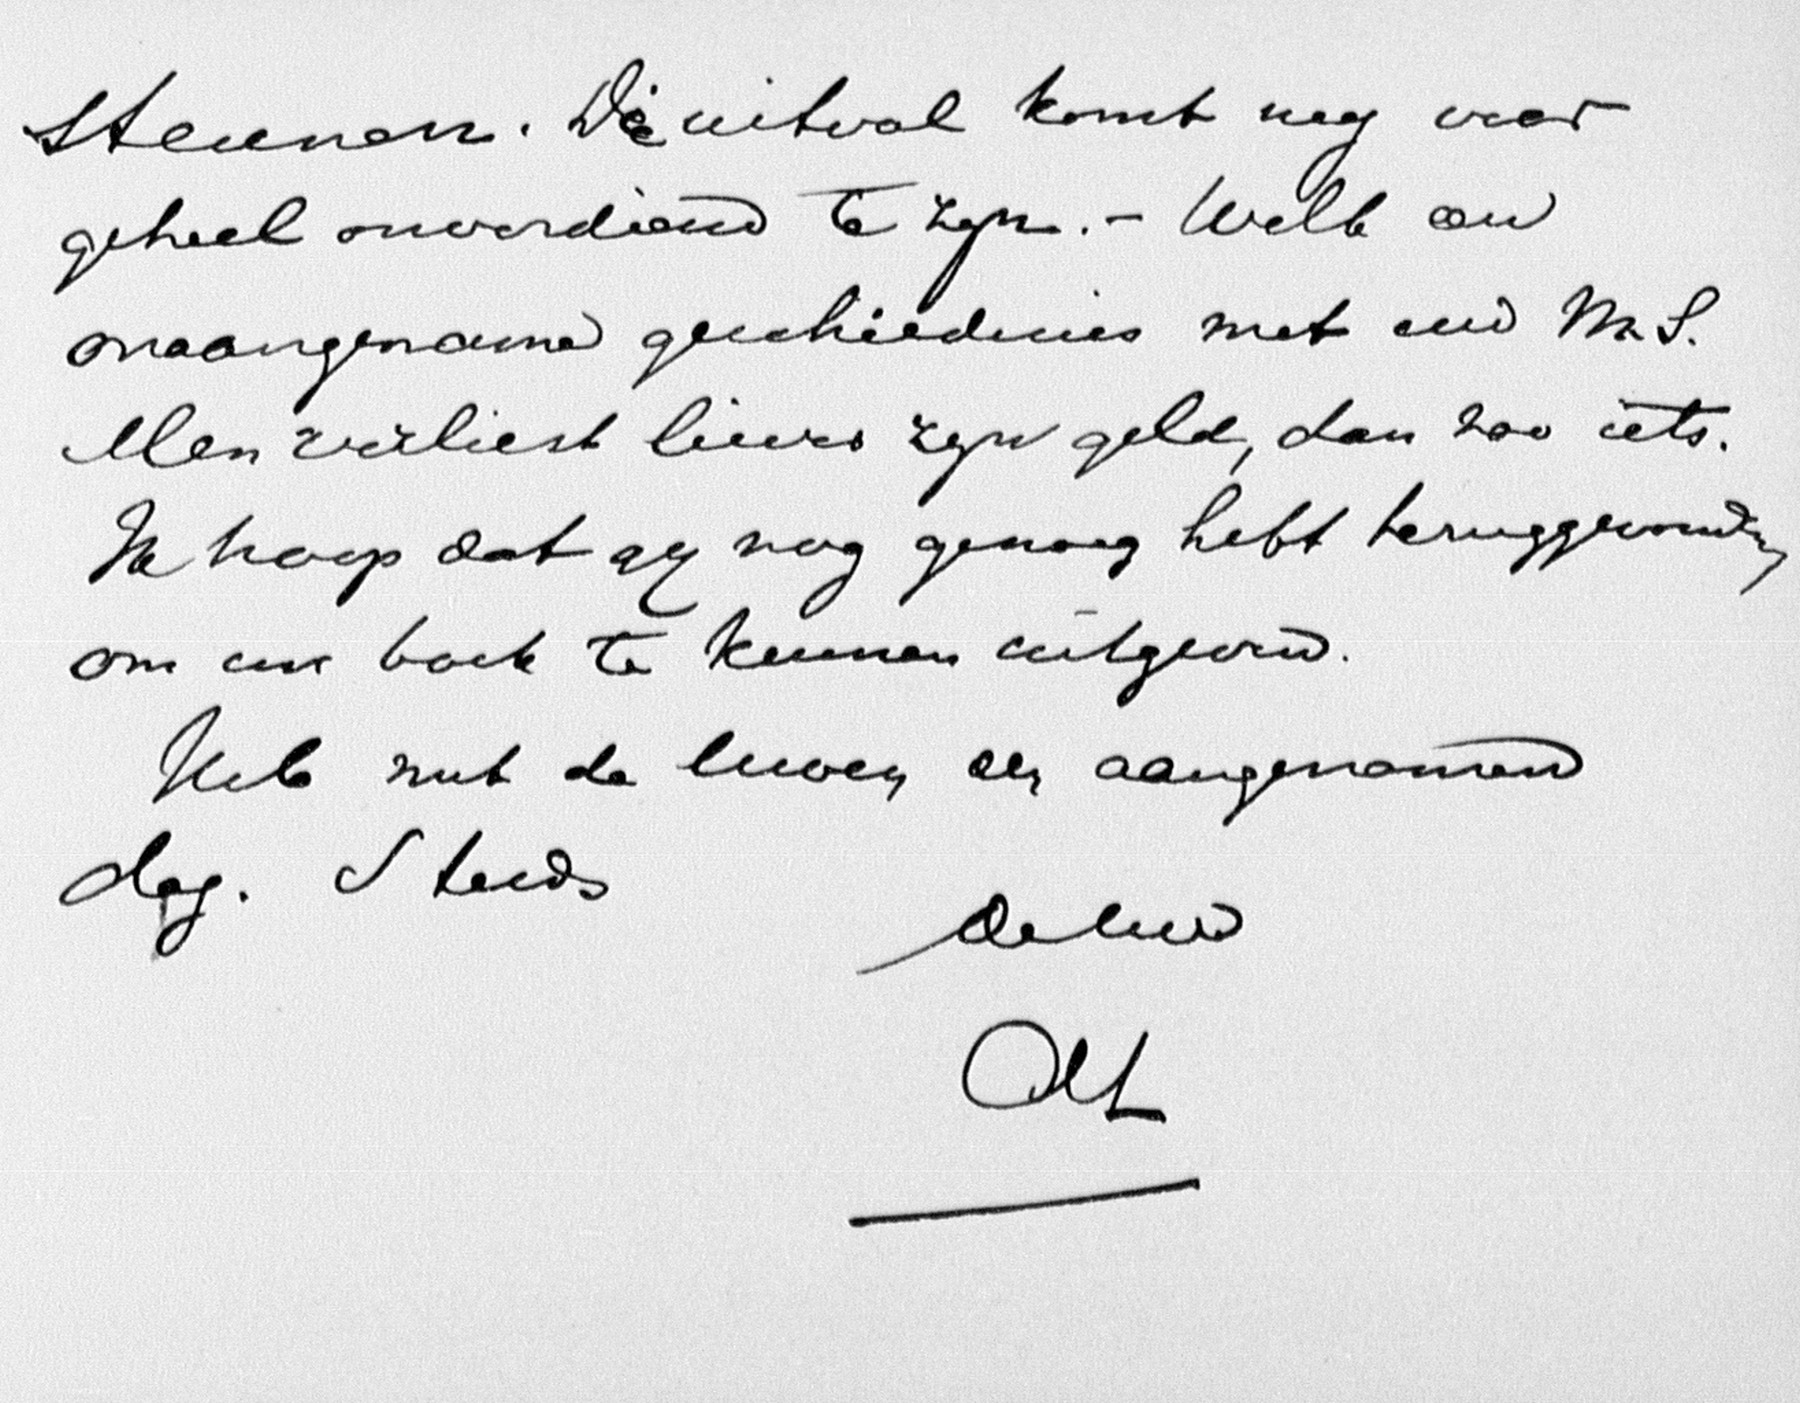 steunen. Die uitval komt my voor
geheel onverdiend te zyn. – Welk een
onaangename geschiedenis met uw M.S.
Men verliest liever zyn geld, dan zoo iets.
Ik hoop dat gy nog genoeg hebt teruggevonden,
om uw boek te kunnen uitgeven.
Heb met de uwen een aangenamen
dag. Steeds
de uw